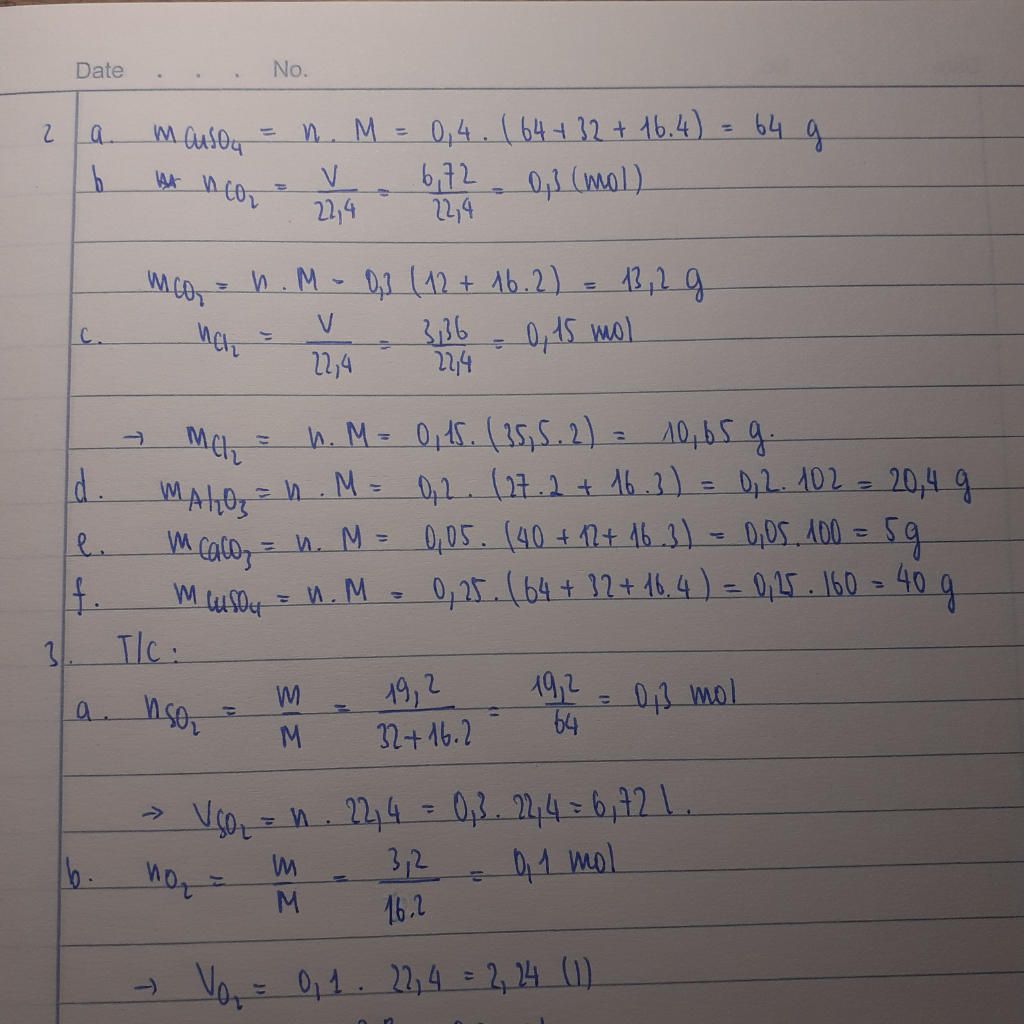 Date . . . No.
2 a. mCuSO4 = n . M = 0,4 . (64 + 32 + 16.4) = 64 g
b nCO2 = V/22,4 = 6,72/22,4 = 0,3 (mol)
mCO2 = n . M - 0,3 (12 + 16.2) = 13,2 g
c. nCl2 = V/22,4 = 3,36/22,4 = 0,15 mol
→ mCl2 = n . M = 0,15. (35,5.2) = 10,65 g.
d. mAl2O3 = n . M = 0,2 . (27.2 + 16.3) = 0,2. 102 = 20,4 g
e. mCaCO3 = n. M = 0,05. (40 + 12 + 16.3) = 0,05.100 = 5g
f. mCuSO4 = n . M = 0,25.(64 + 32 + 16.4) = 0,25 . 160 = 40 g
3. T/C:
a. nSO2 = m/M = 19,2/32+16.2 = 19,2/64 = 0,3 mol
→ VSO2 = n . 22,4 = 0,3. 22,4 = 6,72 l.
b. nO2 = m/M = 3,2/16.2 = 0,1 mol
→ VO2 = 0,1 . 22,4 = 2,24 (l)